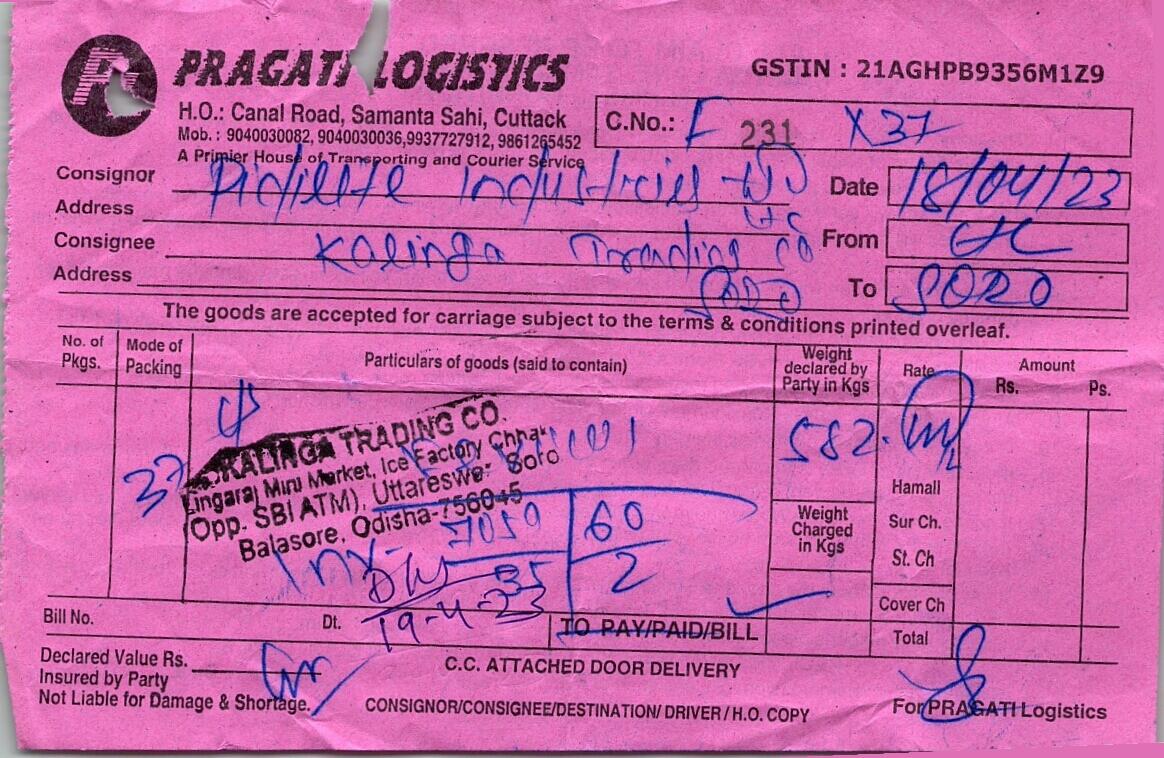 PRAGATI LOGISTICS
GSTIN : 21AGHPB9356M1Z9
H.O.: Canal Road, Samanta Sahi, Cuttack
Mob. : 9040030082, 9040030036,9937727912, 9861265452
A Primier House of Transporting and Courier Service
C.No.: F 231 X37
Consignor Pidilite Industries
Date 18/04/23
Address
From
Consignee Kalinga Trading Co
Address SORO
To SORO
The goods are accepted for carriage subject to the terms & conditions printed overleaf.
No. of Pkgs. Mode of Packing Particulars of goods (said to contain) Weight declared by Party in Kgs Rate Amount Rs. Ps.
37 582.
KALINGA TRADING CO.
Lingaraj Miru Market, Ice Factory Chhak
(Opp. SBI ATM), Uttareswer Soro
Balasore, Odisha-756045
Hamali
Weight Charged in Kgs
Sur Ch.
St. Ch
Cover Ch
Inv- 7050 60
35 2
19-4-23
Bill No. Dt. TO PAY/PAID/BILL Total
Declared Value Rs.
C.C. ATTACHED DOOR DELIVERY
Insured by Party
Not Liable for Damage & Shortage.
CONSIGNOR/CONSIGNEE/DESTINATION/ DRIVER / H.O. COPY
For PRAGATI Logistics